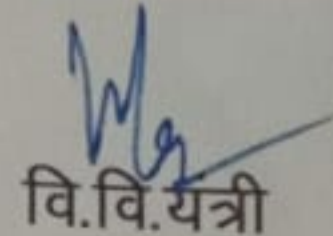 वि.वि.यत्री